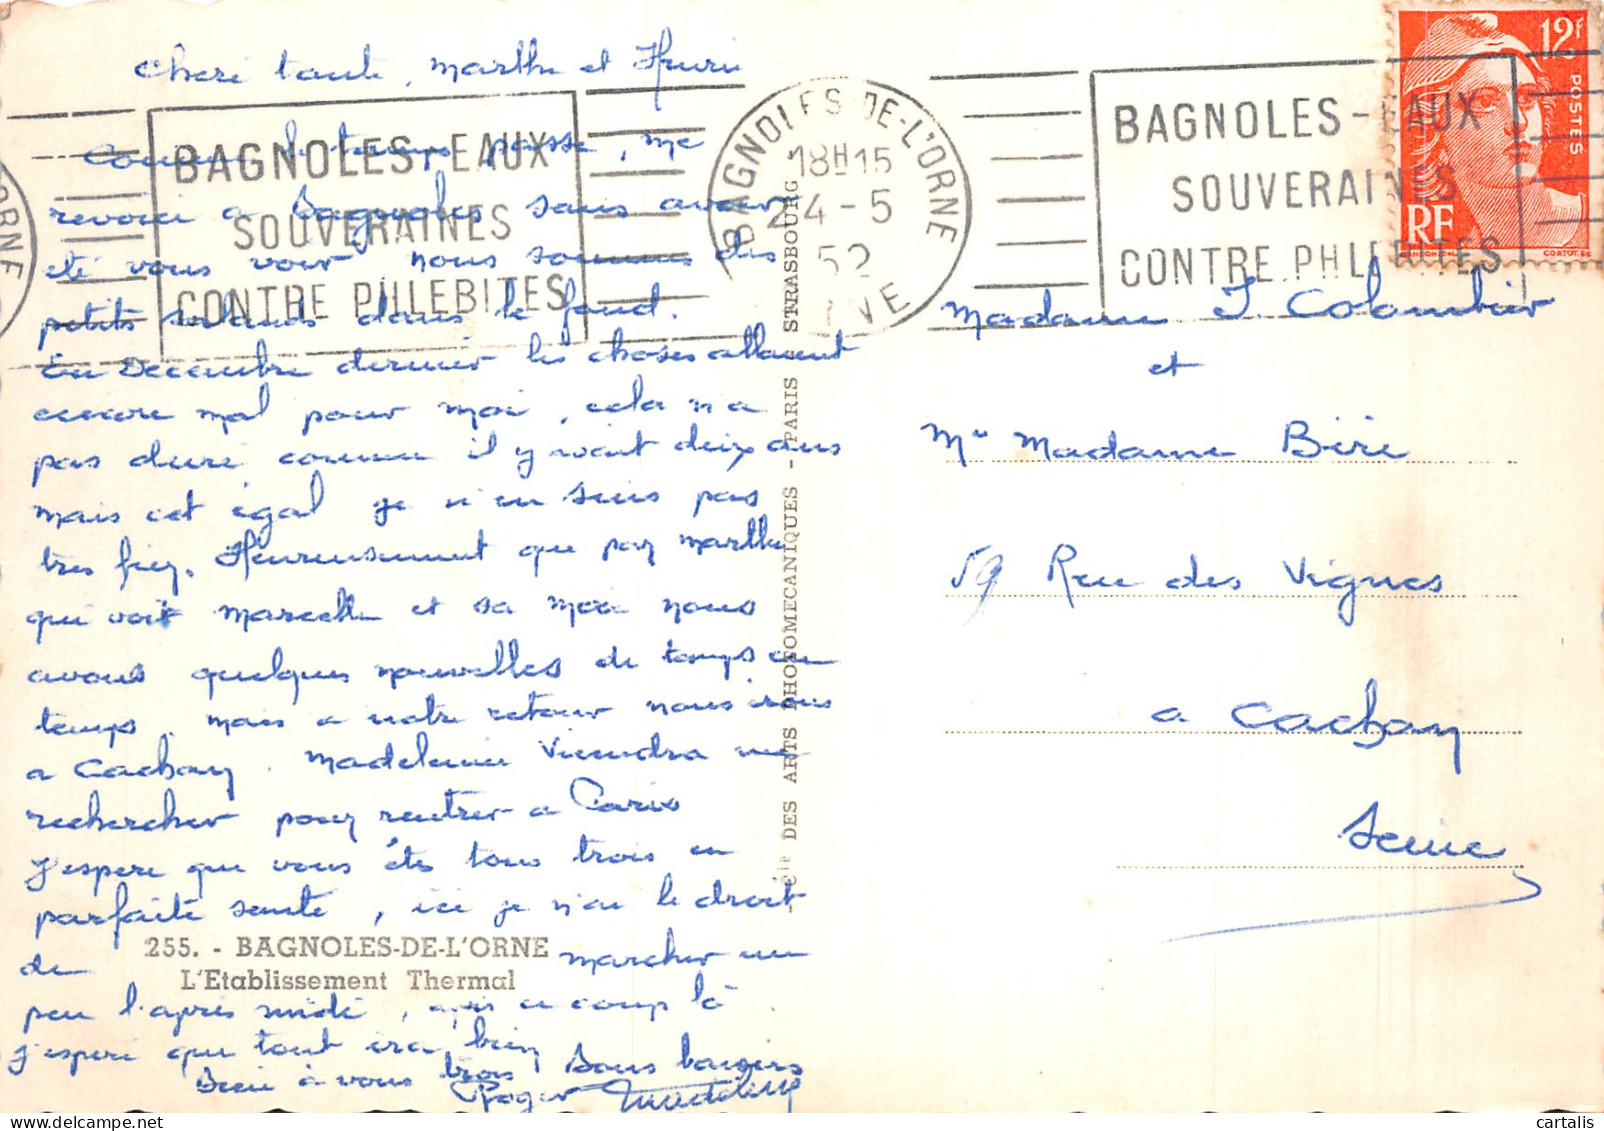 Chere tante, Marthe et Henri
Comme le temps passe, me
revoici a Bagnoles sans avoir
été vous voir nous sommes des
petits salauds dans le fond.
En Decembre dernier les choses allaient
encore mal pour moi, cela n'a
pas duré comme il y avait deux ans
mais cet égal je n'en suis pas
tres fier. Heureusement que par Marthe
qui voit Marcelle et sa mere nous
avons quelques nouvelles de temps en
temps. Mais a notre retour nous irons
a Cachan. Madeleine viendra me
rechercher pour rentrer a Paris
J'espere que vous étes tous trois en
parfaite santé, ici je n'ai le droit
de marcher un
peu l'après midi, après ce coup là
j'espere que tout ira bien
Bien à vous trois, Bons baisers
Roger Madeleine
255. - BAGNOLES-DE-L'ORNE
L'Etablissement Thermal
BAGNOLES-EAUX
SOUVERAINES
CONTRE PHLEBITES
BAGNOLES DE-L'ORNE
18H15
24-5
52
ORNE
BAGNOLES-EAUX
SOUVERAINES
CONTRE PHLEBITES
12F
POSTES
RF
GANDON DEL.
CORTOT SC
Cie DES ARTS PHOTOMECANIQUES - PARIS - STRASBOURG
Madame J. Colombier
et
Mr Madame Biré
59 Rue des Vignes
a Cachan
Seine
cartalis